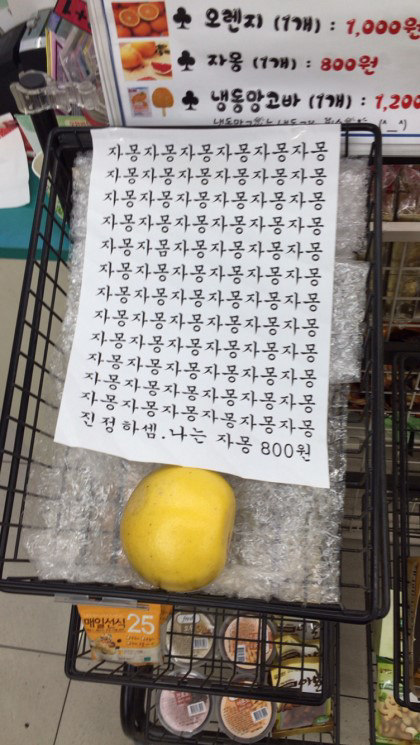 오렌지 (1개) : 1,000원
자몽 (1개) : 800원
냉동망고바 (1개) : 1,200
자몽자몽자몽자몽자몽자몽
자몽자몽자몽자몽자몽자몽
자몽자몽자몽자몽자몽자몽
자몽자몽자몽자몽자몽자몽
자몽자몸자몽자몽자몽자몽
자몽자몽자몽자몽자몽자몽
자몽자몽자몽자몽자몽자몽
자몽자몽자몽자몽자몽자몽
자몽자몽자몽자몽자몽자몽
자몽자몽자몽자몽자몽자몽
자몽자몽자몽자몽자몽자몽
자몽자몽자몽자몽자몽자몽
진정하셈.나는 자몽 800원
매일선식 25